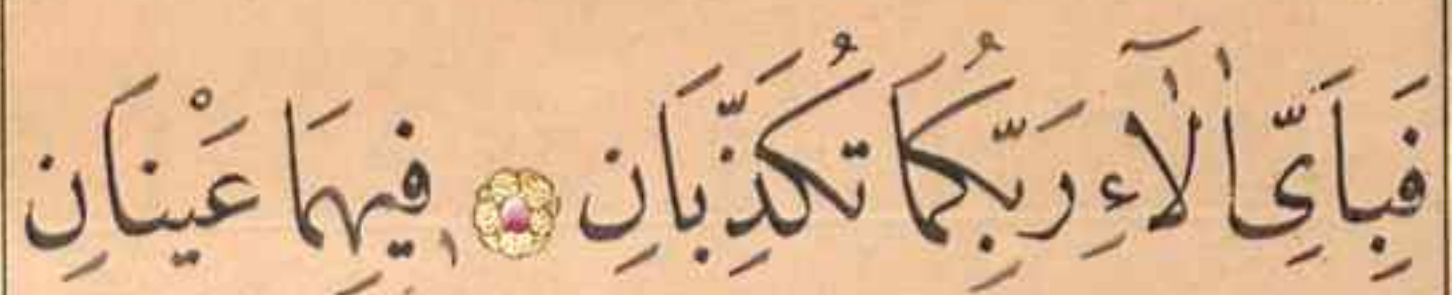 فَبِاَىِّ اٰلَٓاءِ رَبِّكُمَا تُكَذِّبَانِ ۝ فٖيهِمَا عَيْنَانِ